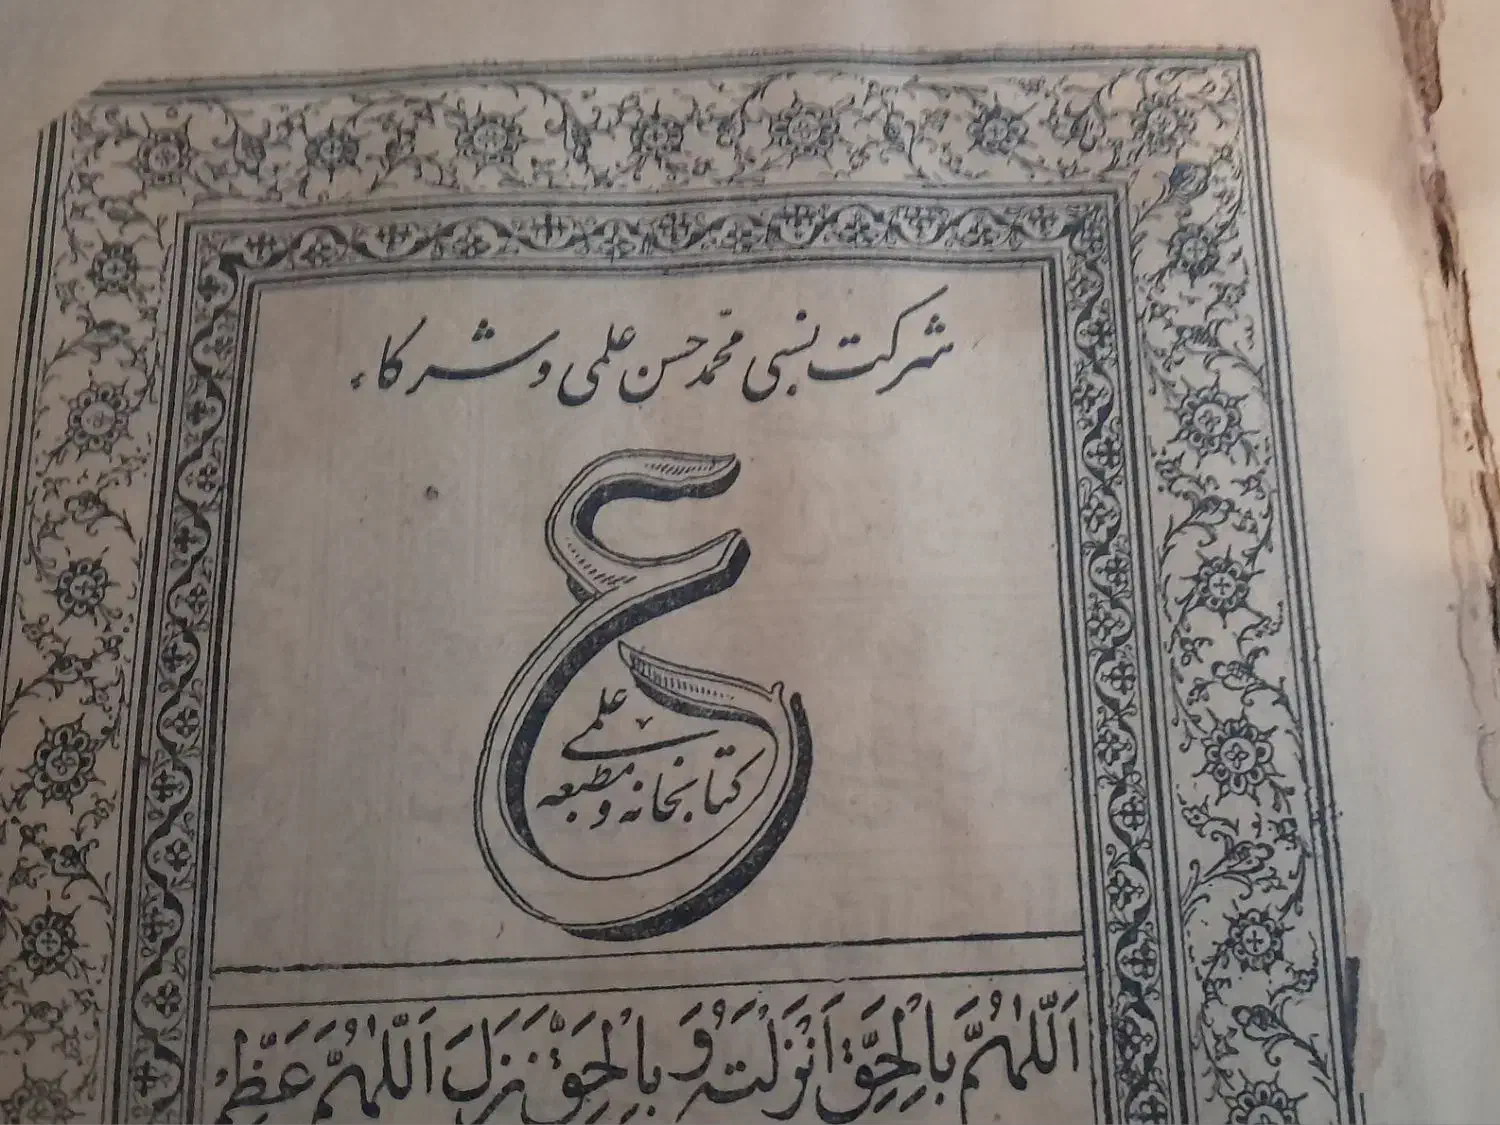 شرکت نسبی محمّد حسن علمی و شرکاء
علمی
کتابخانه و مطبعه
اَللّٰهُمَّ بِالْحَقِّ اَنْزَلْتَهُ وَ بِالْحَقِّ نَزَلَ اَللّٰهُمَّ عَظِّمْ